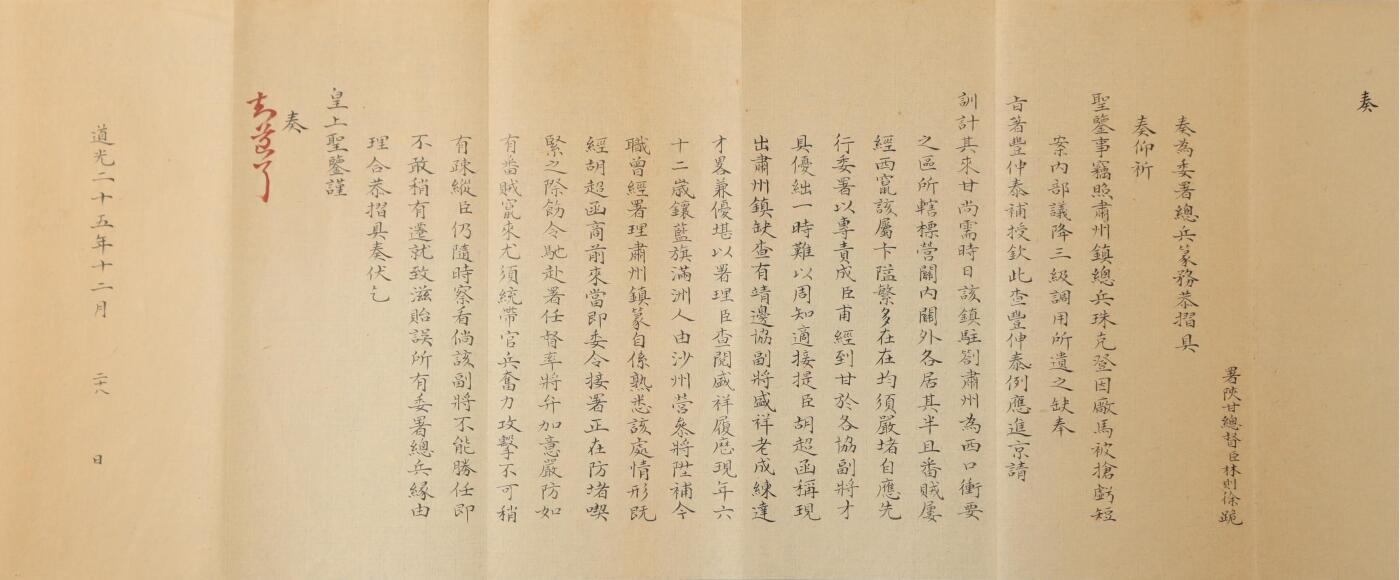 奏
署陝甘總督臣林則徐跪
奏為委署總兵篆務恭摺具
奏仰祈
聖鑒事竊照肅州鎮總兵珠克登因廠馬被搶虧短
案內部議降三級調用所遺之缺奉
旨著豐伸泰補授欽此查豐伸泰例應進京請
訓計其來甘尚需時日該鎮駐劄肅州為西口衝要
之區所轄標營關內關外各居其半且番賊屢
經西竄該屬卡隘繁多在在均須嚴堵自應先
行委署以專責成臣甫經到甘於各協副將才
具優絀一時難以周知適接提臣胡超函稱現
出肅州鎮缺查有靖邊協副將盛祥老成練達
才畧兼優堪以署理臣查閱盛祥履歷現年六
十二歲鑲藍旗滿洲人由沙州營叅將陞補今
職曾經署理肅州鎮篆自係熟悉該處情形既
經胡超函商前來當即委令接署正在防堵喫
緊之際飭令馳赴署任督率將弁加意嚴防如
有番賊竄來尤須統帶官兵奮力攻擊不可稍
有疎縱臣仍隨時察看倘該副將不能勝任即
不敢稍有遷就致滋貽誤所有委署總兵緣由
理合恭摺具奏伏乞
皇上聖鑒謹
奏
知道了
道光二十五年十二月 二十八 日